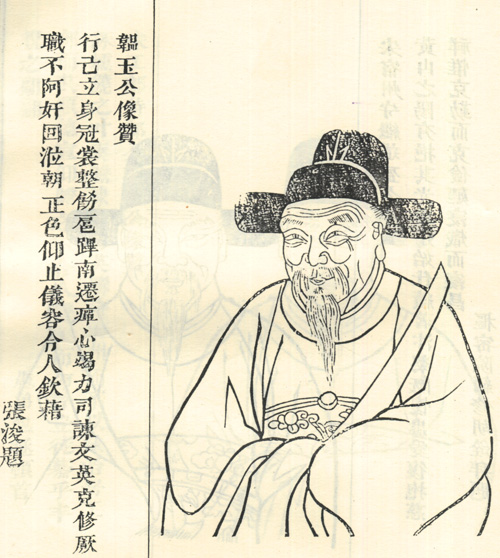 韞玉公像贊
行古立身冠裳整傍扈蹕南遷瘁心竭力司諫友英克修厥
職不阿奸回涖朝正色仰止儀容令人欽藉
張浚題